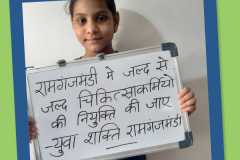 रामगंजमंडी मे जल्द से
जल्द चिकित्साकर्मियो
की नियुक्ति की जाए
-युवा शक्ति रामगंजमंडी